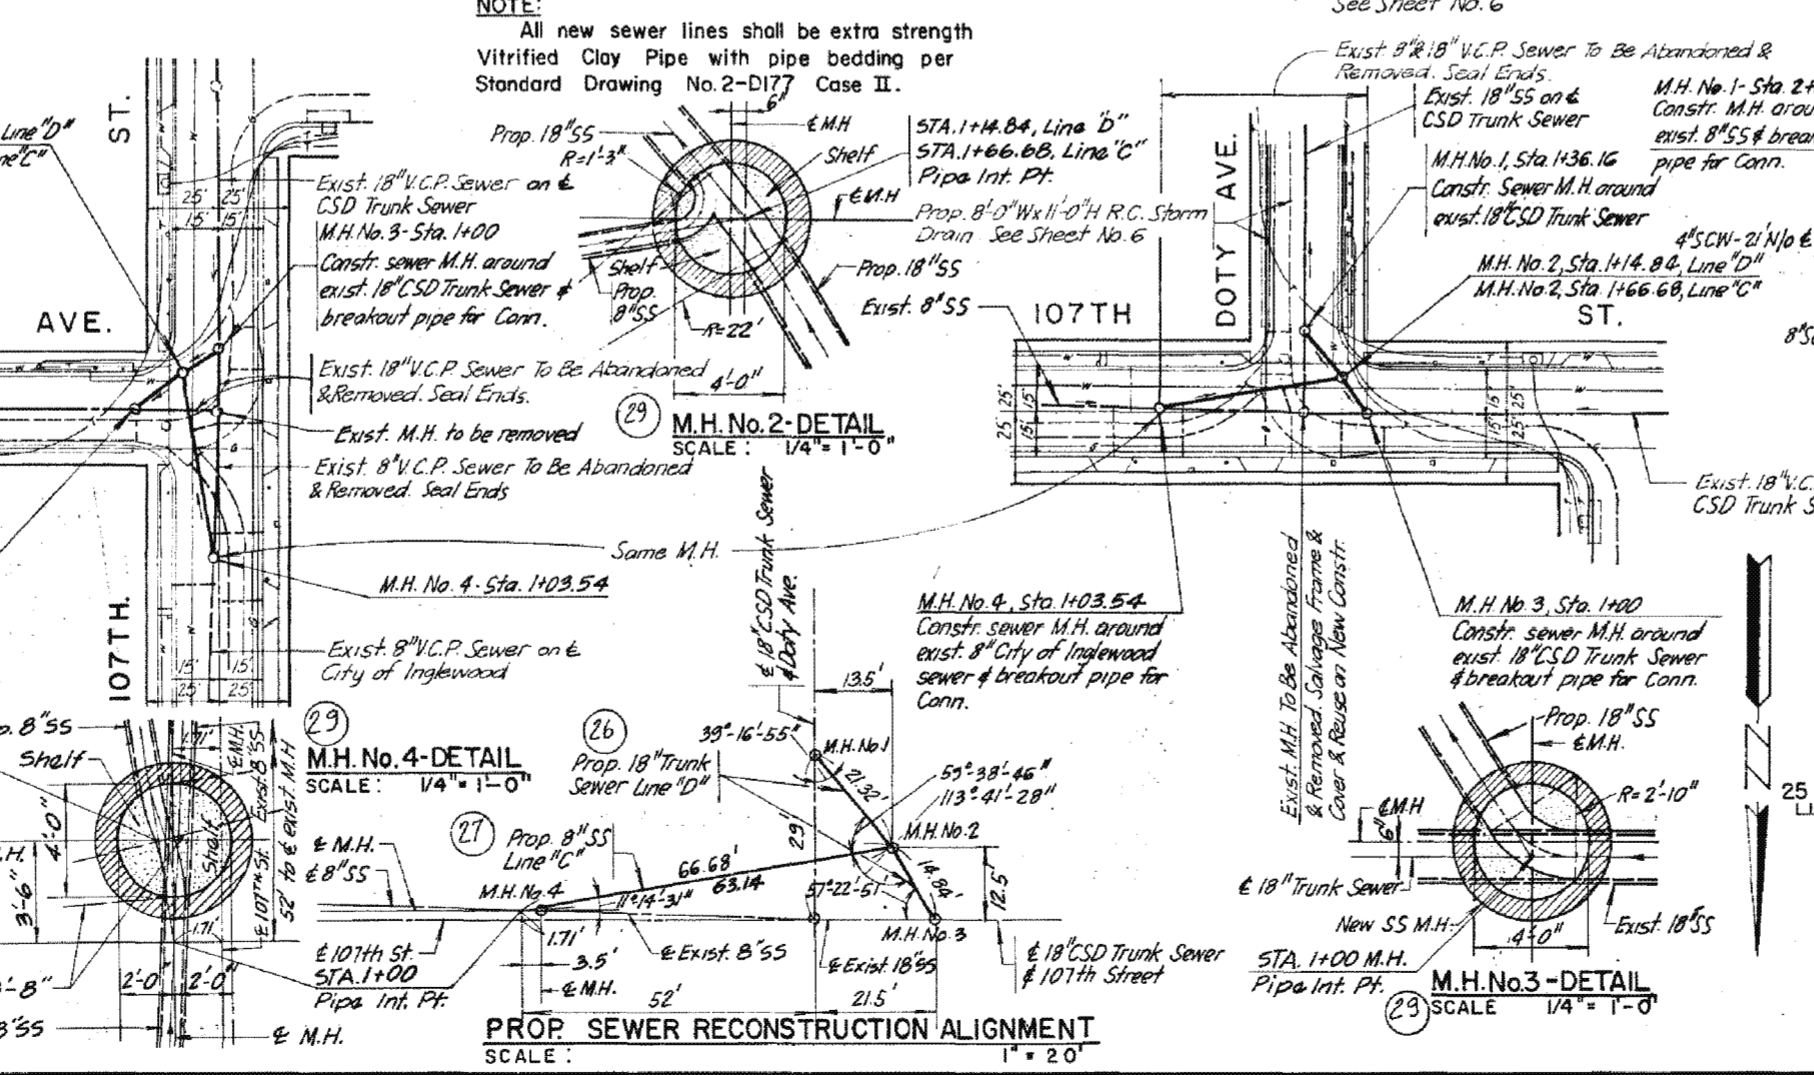 NOTE:
All new sewer lines shall be extra strength
Vitrified Clay Pipe with pipe bedding per
Standard Drawing No. 2-D177 Case II.
See Sheet No. 6
Exist 8"&18" V.C.P. Sewer To Be Abandoned &
Removed. Seal Ends.
Exist. 18"SS on ℄
CSD Trunk Sewer
M.H. No. 1- Sta. 2+
Constr. M.H. arou
exist. 8"SS & break
pipe for Conn.
M.H. No. 1, Sta. 1+36.16
Constr. Sewer M.H. around
exist. 18"CSD Trunk Sewer
4"SCW-21'N/o ℄
M.H. No. 2, Sta. 1+14.84, Line "D"
M.H. No. 2, Sta. 1+66.68, Line "C"
8"S
Line "D"
ne "C"
ST.
AVE.
107TH.
25' 25'
15' 15'
Exist. 18" V.C.P. Sewer on ℄
CSD Trunk Sewer
M.H. No. 3 - Sta. 1+00
Constr. sewer M.H. around
exist. 18"CSD Trunk Sewer &
breakout pipe for Conn.
Exist. 18" V.C.P. Sewer To Be Abandoned
& Removed. Seal Ends.
Exist. M.H. to be removed
Exist. 8" V.C.P. Sewer To Be Abandoned
& Removed. Seal Ends
Same M.H.
M.H. No. 4 - Sta. 1+03.54
Exist. 8" V.C.P. Sewer on ℄
City of Inglewood
15' 15'
25' 25'
6"
℄ M.H
Prop. 18"SS
R=1'-3"
Shelf
STA. 1+14.84, Line "D"
STA. 1+66.68, Line "C"
Pipe Int. Pt.
℄ M.H
Prop. 8'-0"W x 11'-0"H R.C. Storm
Drain See Sheet No. 6
Shelf
Prop.
8"SS
R=22'
Prop. 18"SS
4'-0"
29
M.H. No. 2-DETAIL
SCALE: 1/4" = 1'-0"
Exist. 8"SS
107TH
DOTY AVE.
ST.
25' 15'
25' 15'
15' 25'
15' 25'
Exist. 18"V.C.
CSD Trunk S
M.H. No. 4, Sta. 1+03.54
Constr. sewer M.H. around
exist. 8" City of Inglewood
sewer & breakout pipe for
Conn.
Exist M.H. To Be Abandoned
& Removed. Salvage Frame &
Cover & Reuse on New Constr.
M.H. No. 3, Sta. 1+00
Constr. sewer M.H. around
exist. 18"CSD Trunk Sewer
& breakout pipe for Conn.
p. 8"SS
Shelf
1.71'
℄ M.H.
Exist 8"SS
℄ 107TH St.
52' to ℄ exist M.H
4'-0"
Shelf
.H.
3'-6"
1.71'
'-8"
2'-0" 2'-0"
8"SS
℄ M.H.
29
M.H. No. 4-DETAIL
SCALE: 1/4" = 1'-0"
℄ 18"CSD Trunk Sewer
& Doty Ave.
13.5'
39°-16'-55"
M.H. No. 1
26
Prop. 18" Trunk
Sewer Line "D"
21.32'
59°-38'-46"
113°-41'-28"
M.H. No. 2
27
Prop. 8"SS
Line "C"
29'
66.68'
63.14
57°-22'-51"
14.84
12.5'
℄ M.H.
℄ 8"SS
M.H. No. 4
11°-14'-31"
M.H. No. 3
1.71'
℄ 107th St.
STA. 1+00
Pipe Int. Pt.
3.5'
℄ M.H.
℄ Exist. 8"SS
℄ Exist 18"SS
℄ 18"CSD Trunk Sewer
& 107th Street
52'
21.5'
PROP. SEWER RECONSTRUCTION ALIGNMENT
SCALE: 1" = 20'
Prop. 18"SS
℄ M.H.
R=2'-10"
℄ M.H
6"
℄ 18" Trunk Sewer
New SS M.H.
Exist. 18"SS
4'-0"
STA. 1+00 M.H.
Pipe Int. Pt.
29
M.H. No. 3-DETAIL
SCALE 1/4" = 1'-0"
N
25